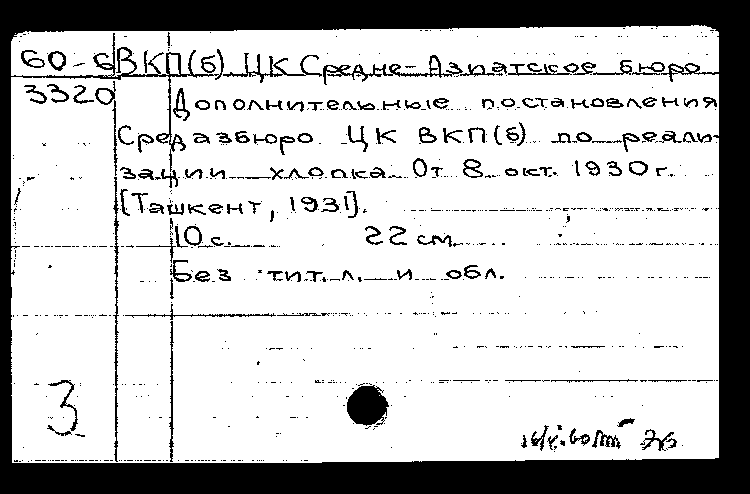 60-6 ВКП(б). ЦК Средне-Азиатское бюро
3320 Дополнительные постановления
Средазбюро ЦК ВКП(б) по реали-
зации хлопка. От 8 окт. 1930 г.
[Ташкент, 1931].
10 с. 22 см.
Без тит. л. и обл.
3